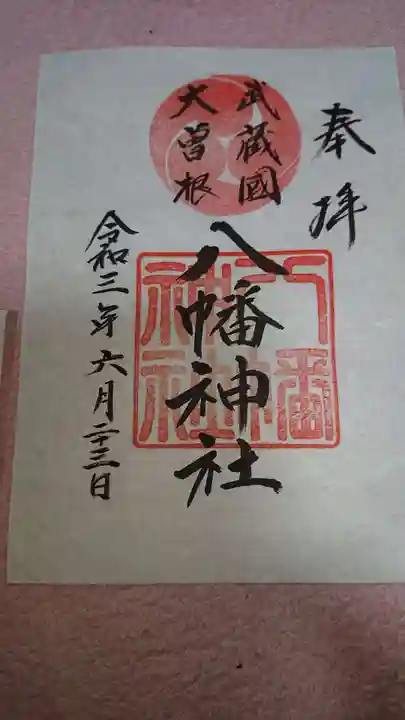 奉拝
武蔵國
大曽根
八幡神社
令和三年六月二十三日
八幡
神社